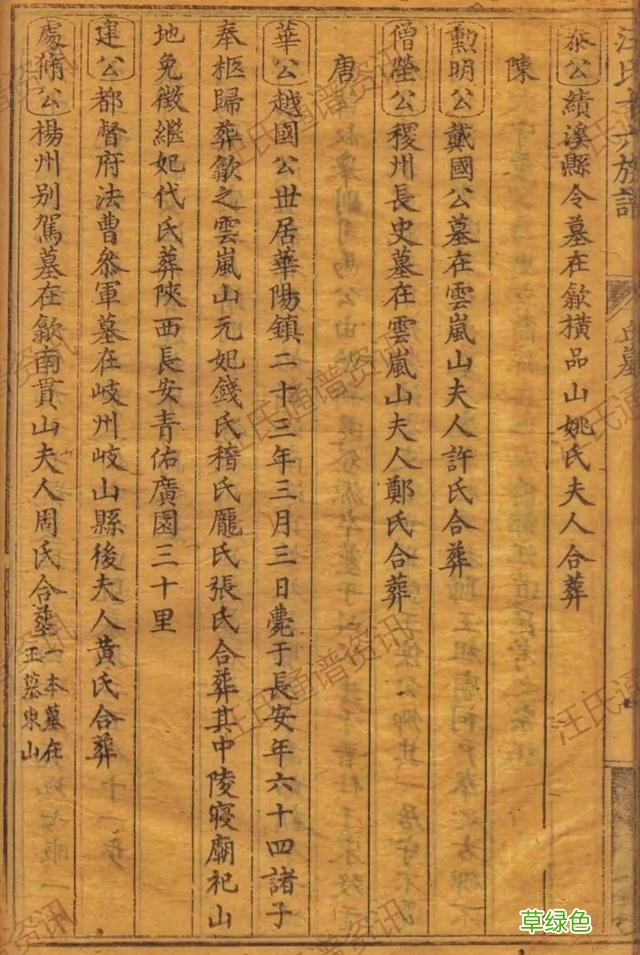 汪氏十六族譜
丘墓
泰公績溪縣令墓在歙橫品山姚氏夫人合葬
陳
勳明公戴國公墓在雲嵐山夫人許氏合葬
僧瑩公稷州長史墓在雲嵐山夫人鄭氏合葬
唐
華公越國公世居華陽鎮二十三年三月三日薨于長安年六十四諸子
奉柩歸葬歙之雲嵐山元妃錢氏稽氏龐氏張氏合葬其中陵寢廟祀山
地免徵繼妃代氏葬陝西長安青佑廣園三十里
建公都督府法曹叅軍墓在岐州岐山縣後夫人黃氏合葬
處脩公楊州別駕墓在歙南貫山夫人周氏合葬一本墓在
王墓東山
汪氏通谱资讯
草绿色